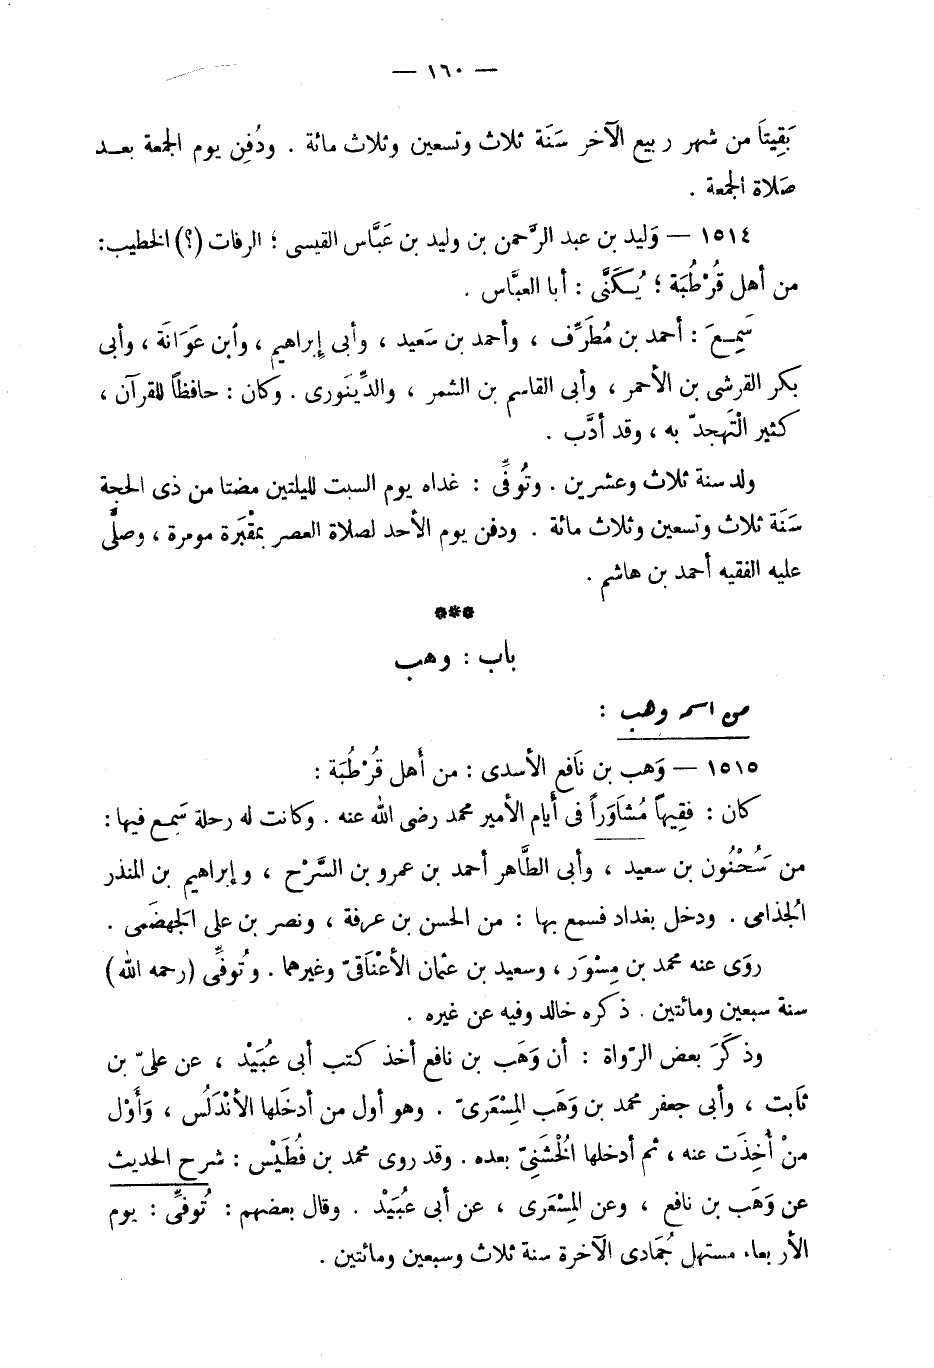 — ١٦٠ —
بَقِيتاَ من شهر ربيع الآخر سَنَة ثلاث وتسعين وثلاث مائة . ودُفِن يوم الجمعة بعد
صَلاة الجمعة .
١٥١٤ — وَليد بن عبد الرَّحمن بن وليد بن عَبَّاس القيسى ؛ الرفات (؟) الخطيب :
من أهل قُرْطُبَة ؛ يُكَنَّى : أبا العبَّاس .
سَمِعَ : أحمد بن مُطَرِّف ، وأحمد بن سَعيد ، وأبى إِبراهيم ، وأبن عَوَانَة ، وأبى
بكر القرشى بن الأحمر ، وأبى القاسم بن الشمر ، والدِّينَورى . وكان : حافظاً للقرآن ،
كثير التَهجدّ به ، وقد أدَّب .
ولد سنة ثلاث وعشرين . وتُوفِّى : غداه يوم السبت لليلتين مضتا من ذى الحجة
سَنَة ثلاث وتسعين وثلاث مائة . ودفن يوم الأحد لصلاة العصر بمقْبَرة مومرة ، وصلَّى
عليه الفقيه أحمد بن هاشم .
***
باب : وهب
من اسمه وهب :
١٥١٥ — وَهب بن نَافع الأسدى : من أهل قُرْطُبَة :
كان : فقِيهاً مُشاَوَراً فى أَيام الأمير محمد رضى الله عنه . وكانت له رحلة سَمِع فيها :
من سَُحْنُون بن سعيد ، وأبى الطَّاهر أحمد بن عمرو بن السَّرْح ، وإبراهيم بن المنذر
الُجذامى . ودخل بغداد فسمع بها : من الحسن بن عرفة ، ونصر بن على الَجهضَمى .
روَى عنه محمد بن مِسْوَر ، وسعيد بن عثمان الأعْنَاقىّ وغيرهما . وتُوفِّى (رحمه الله)
سنة سبعين ومائتين . ذكره خالد وفيه عن غيره .
وذكَرَ بعض الرّواة : أن وَهَب بن نافع أخذ كتب أبى عُبَيْد ، عن علىّ بن
ثابت ، وأبى جعفر محمد بن وَهَب المِسْعَرىّ . وهو أول من أدخَلها الأنْدَلُس ، وَأَوْل
منْ أُخِذَت عنه ، ثم أدخلها الُخْشَنِىّ بعده . وقد روى محمد بن فُطَيْس : شرح الحديث
عن وَهَب بن نافع ، وعن المِسْعَرى ، عن أبى عُبَيْد . وقال بعضهم : تُوفِّى : يوم
الأربعاء مستهل جُمَادى الآخرة سنة ثلاث وسبعين ومائتين .